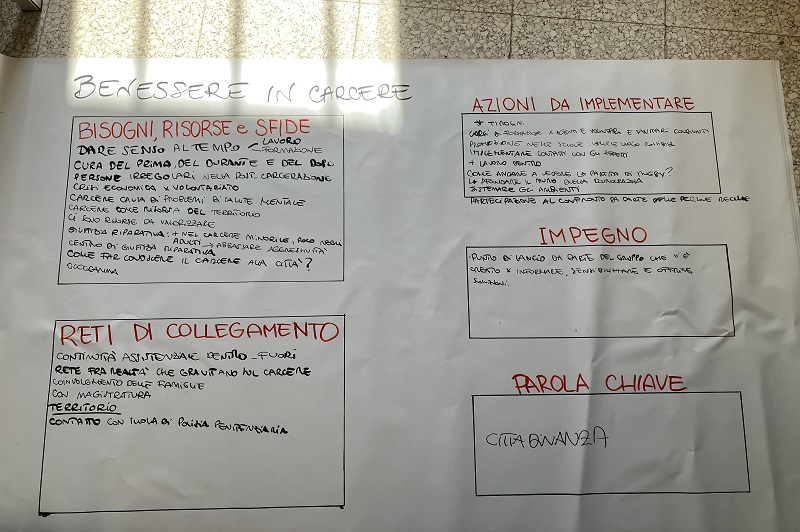 BENESSERE IN CARCERE
BISOGNI, RISORSE e SFIDE
DARE SENSO AL TEMPO < LAVORO
FORMAZIONE
CURA DEL PRIMA, DEL DURANTE E DEL DOPO
PERSONE IRREGOLARI NELLA POST CARCERAZIONE
CRISI ECONOMICA X VOLONTARIATO
CARCERE CAUSA DI PROBLEMI DI SALUTE MENTALE
CARCERE COME RISORSA DEL TERRITORIO
CI SONO RISORSE DA VALORIZZARE
GIUSTIZIA RIPARATIVA: + NEL CARCERE MINORILE, POCO NEGLI
ADULTI → ABBASSARE AGGRESSIVITÀ
CENTRO DI GIUSTIZIA RIPARATIVA
COME FAR CONOSCERE IL CARCERE ALLA CITTÀ?
RETI DI COLLEGAMENTO
CONTINUITÀ ASSISTENZIALE DENTRO - FUORI
RETE FRA REALTÀ CHE GRAVITANO SUL CARCERE
COINVOLGIMENTO DELLE FAMIGLIE
CON MAGISTRATURA
TERRITORIO
CONTATTO CON SCUOLA DI POLIZIA PENITENZIARIA
AZIONI DA IMPLEMENTARE
TIROCINI
CORSI DI FORMAZIONE X AGENTI E VOLONTARI E SANITARI CONGIUNTI
PREVENZIONE NELLE SCUOLE
IMPLEMENTARE CONTATTI CON GLI
+ LAVORO DENTRO
COME ANDARE A VEDERE LA PARTITA DI RUGBY?
SISTEMARE GLI AMBIENTI
PARTECIPAZIONE AL CONFRONTO DA PARTE DELLE PERSONE RECLUSE
IMPEGNO
PUNTO DI LANCIO DA PARTE DEL GRUPPO CHE SI È
CREATO X INFORMARE, SENSIBILIZZARE E OFFRIRE
SOLUZIONI.
PAROLA CHIAVE
CITTADINANZA